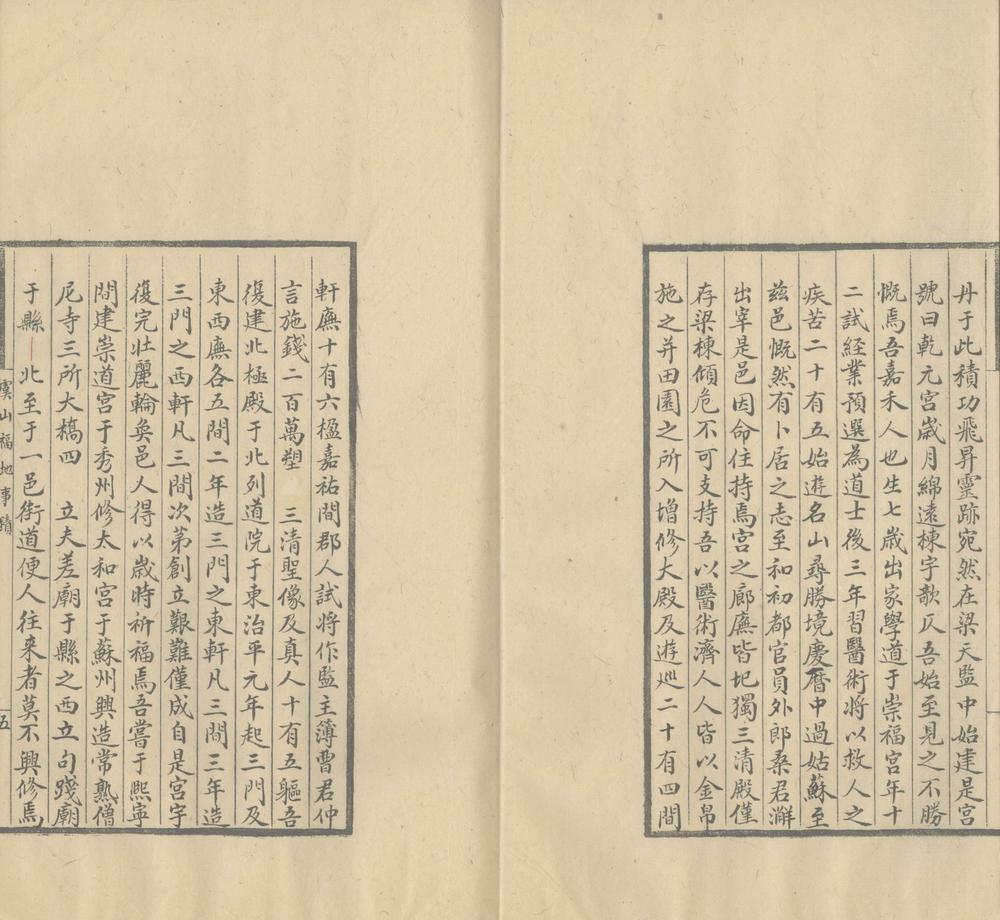 丹于此積功飛昇靈跡宛然在梁天監中始建是宮
號曰乾元宮歲月綿遠棟宇欹仄吾始至見之不勝
慨焉吾嘉禾人也生七歲出家學道于崇福宮年十
二試経業預選為道士後三年習醫術將以救人之
疾苦二十有五始遊名山尋勝境慶曆中過姑蘇至
兹邑慨然有卜居之志至和初都官員外郎桑君澥
出宰是邑因命住持焉宮之廊廡皆圮獨三清殿僅
存梁棟傾危不可支持吾以醫術濟人人皆以金帛
施之并田園之所入增修大殿及遊廵二十有四間
軒廡十有六楹嘉祐間郡人試將作監主簿曹君仲
言施錢二百萬塑 三清聖像及真人十有五軀吾
復建北極殿于北列道院于東治平元年起三門及
東西廡各五間二年造三門之東軒凡三間三年造
三門之西軒凡三間次第創立艱難僅成自是宮宇
復完壯麗輪奐邑人得以歲時祈福焉吾嘗于熙寧
間建崇道宮于秀州修太和宮于蘇州興造常熟僧
尼寺三所大橋四 立夫差廟于縣之西立句踐廟
于縣 北至于一邑街道便人往来者莫不興修焉
虞山福地事蹟
五